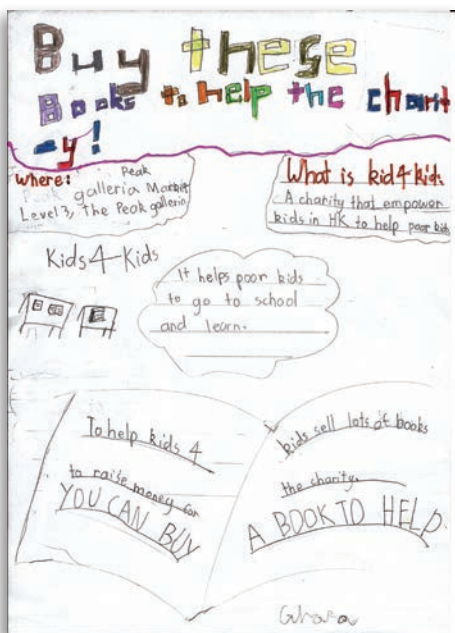 Buy these
Books to help the charit
-y!
Where:
Peak
galleria Market
Level 3, The Peak galleria
What is kid4kids
A charity that empower
kids in HK to help poor kids
Kids4-Kids
It helps poor kids
to go to school
and learn.
To help kids 4
kids sell lots of books
to raise money for
the charity.
YOU CAN BUY
A BOOK TO HELP